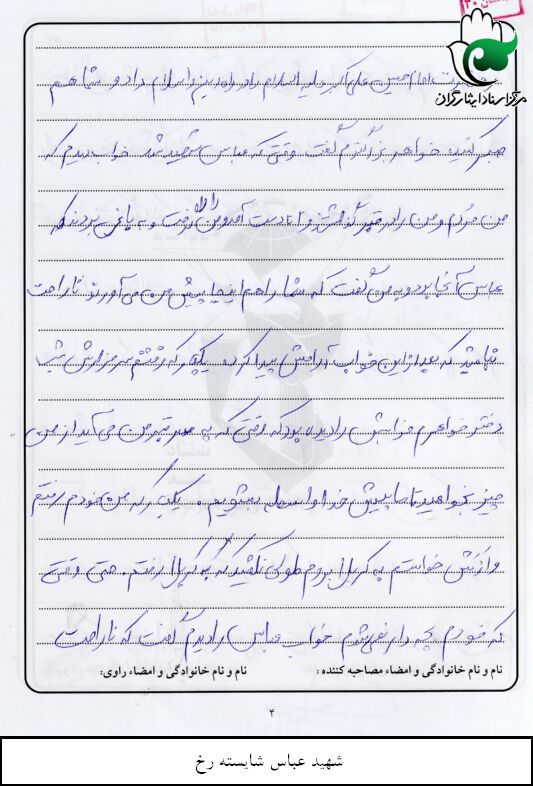 مرکز اسناد ایثارگران
حضرت امام حسین علی اکبر علیه السلام را در راه دین اسلام داد و شما هم
صبر کنید خواهر بزرگترم گفت وقتی که عباس شهید شد خواب دیدم که
من مردم و من را در قبر گذاشتند و دست آمد و من را گرفت و به باغی بردند که
عباس آنجا بود و به من گفت که شما را هم اینجا پیش من می آورند ناراحت
نباشید که بعد از این خواب آرامش پیدا کردم یکبار که رفتم سر مزارش شب
دختر خواهرم خوابش را دیده بود که وقتی که به سر قبر من می آید از من
چیز بخواهید تا ما پیش خدا واسطه بشویم. یکبار که من خودم رفتم
و ازش خواستم به کربلا بروم طولی نکشید که به کربلا رفتم. حتی وقتی
که خودم بچه دار نمی شدم خواب عباس را دیدم گفت که ناراحت
نام و نام خانوادگی و امضاء مصاحبه کننده : نام و نام خانوادگی و امضاء راوی:
۴
شهید عباس شایسته رخ